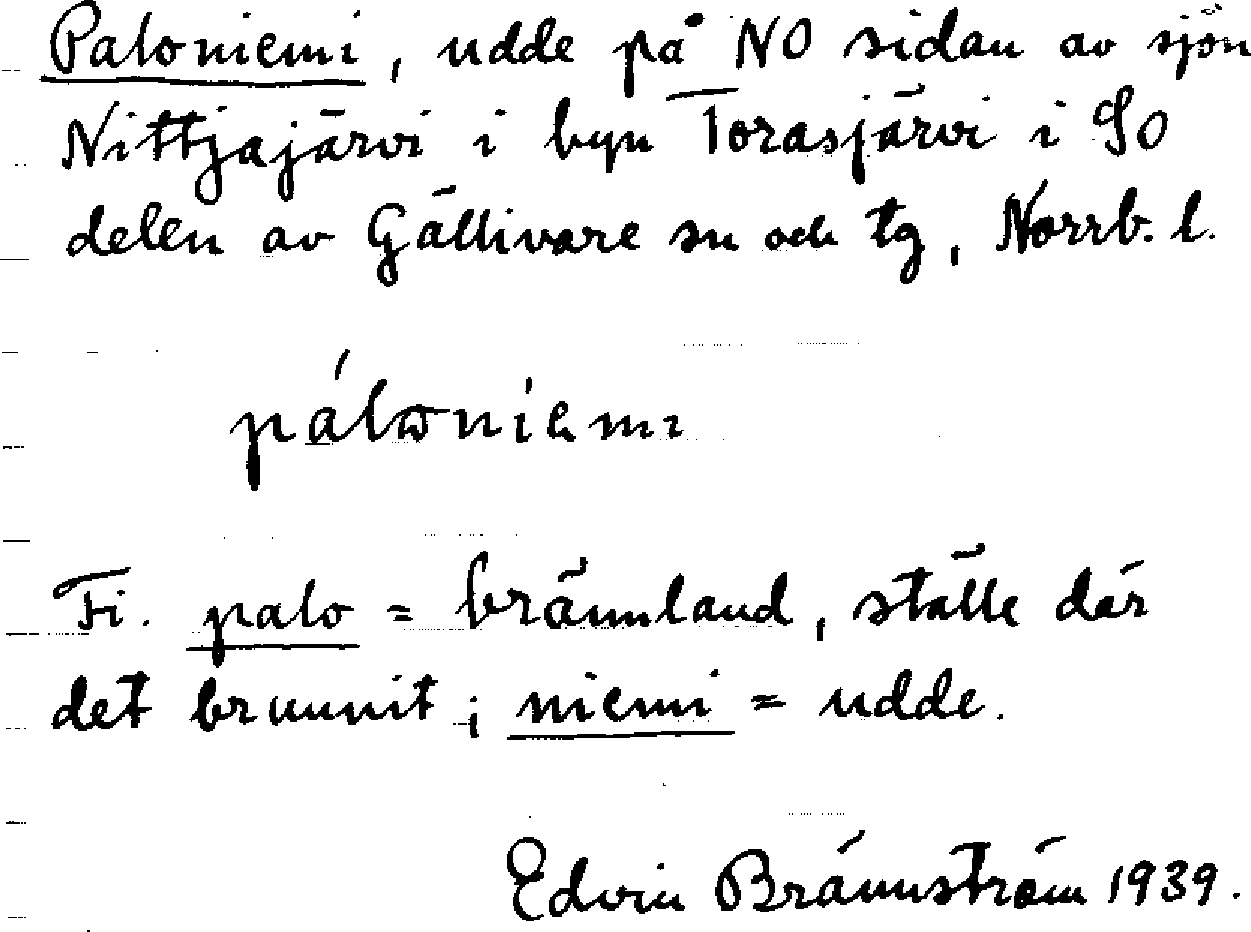 Paloniemi, udde på NO sidan av sjön
Nittjajärvi i byn Torasjärvi i SO
delen av Gällivare sn och tg, Norrb. l.
pálɷniemi
Fi. palo = brännland, ställe där
det brunnit; niemi = udde.
Edvin Brännström 1939.